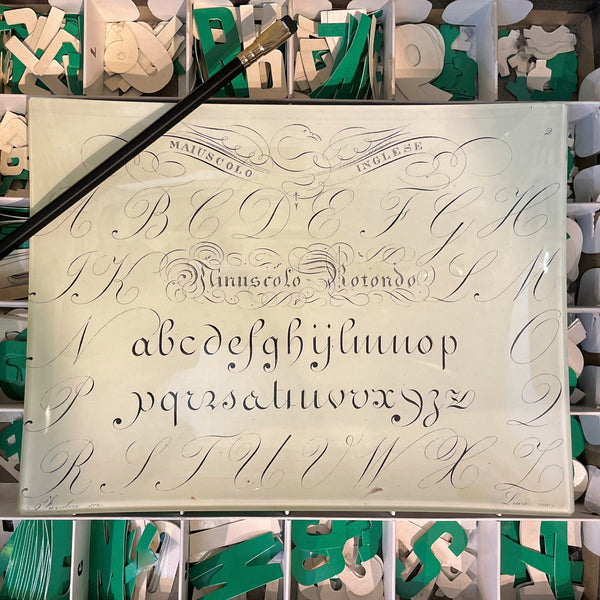 MAIUSCOLO INGLESE
A B C D E F G H
I K Minuscolo Rotondo L M
N abcdefghijlmnop O
P pqrzsatiuvvxyzz Q
R S T U V W X Z